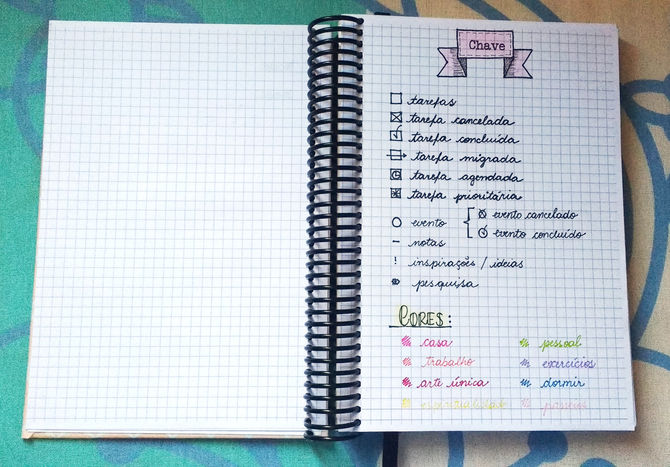 Chave
tarefas
tarefa cancelada
tarefa concluída
tarefa migrada
tarefa agendada
tarefa prioritária
evento
evento cancelado
evento concluído
- notas
! inspirações / ideias
pesquisa
CORES:
casa
pessoal
trabalho
exercícios
arte única
dormir
espiritualidade
passeios